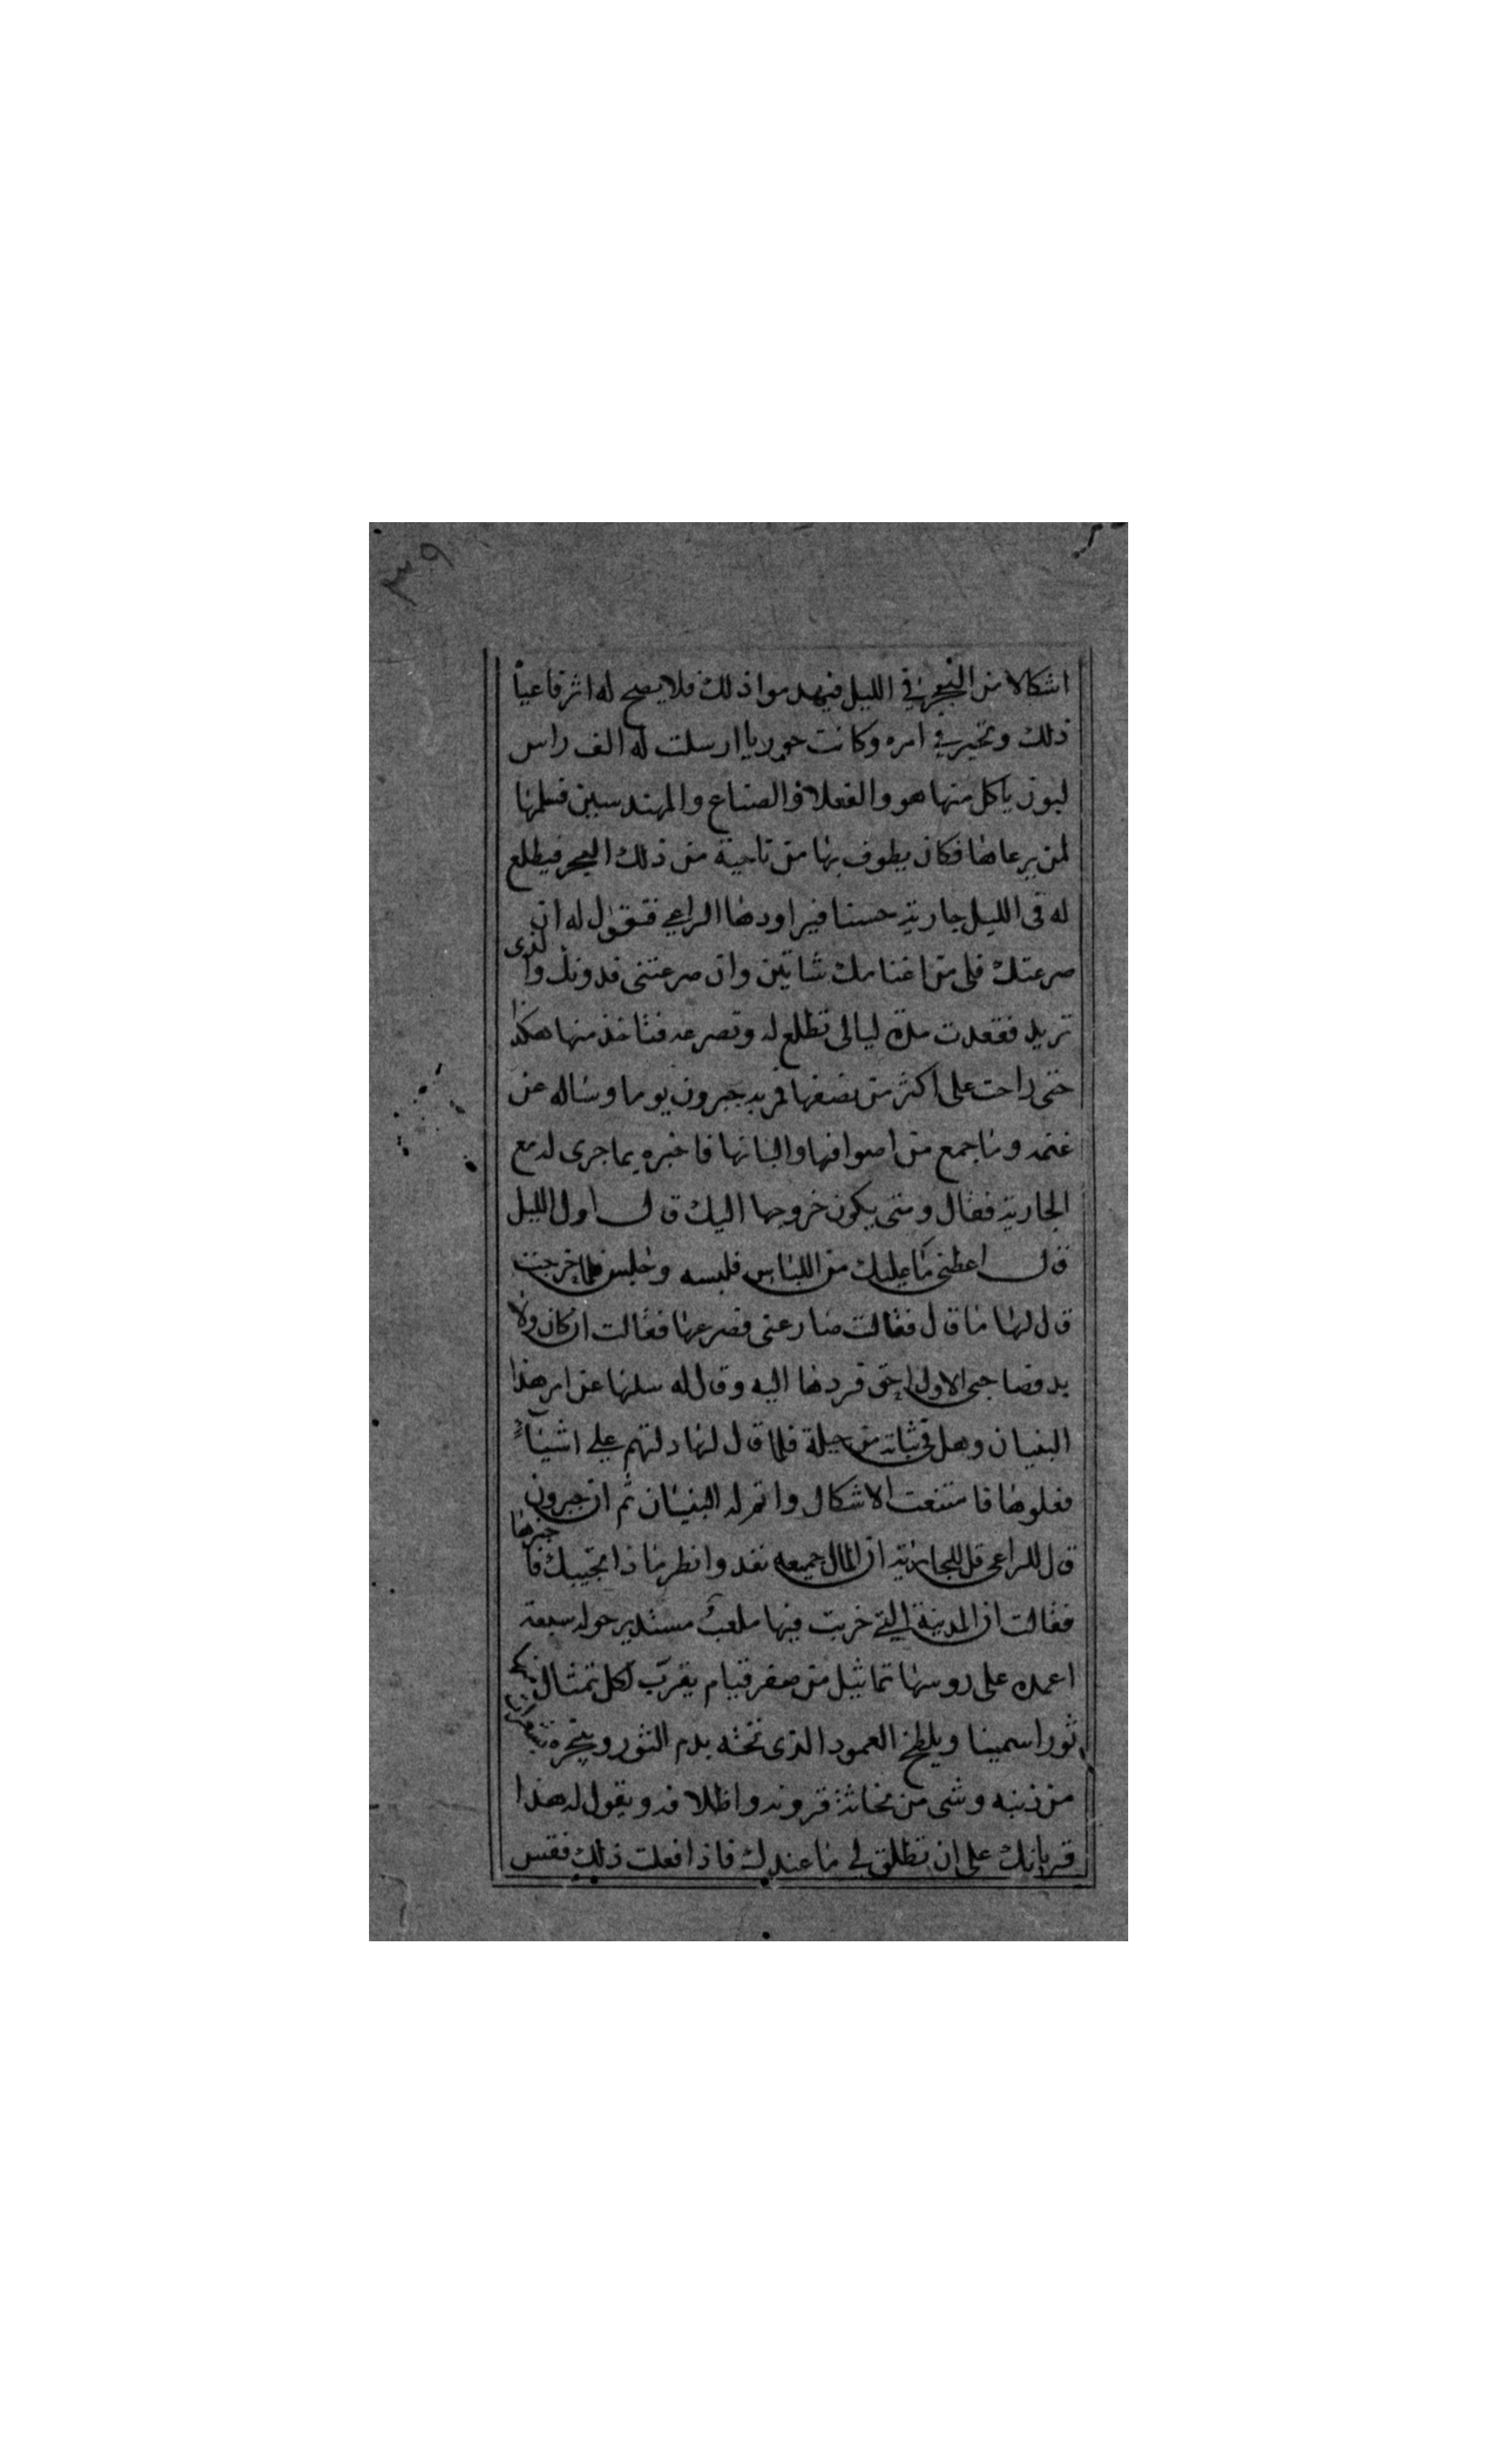 ٣٩
اشكالا من البحر في الليل فيهدموا ذلك فلا يصح له اثر فاعيا
ذلك وتحير في امره وكانت حوريا ارسلت له الف راس
لبون ياكل منها هو والفعلا والصناع والمهندسين فسلمها
لمن يرعاها فكان يطوف بها من ناحية من ذلك البحر فيطلع
له في الليل جارية حسنا فيراودها الراعي فتقول له ان
صرعتك فلي من اغنامك شاتين وان صرعتني فدونك والذى
تريد فقعدت مدة ليالى تطلع له وتصرعه فتاخذ منها هكذا
حتى راحت على اكثر من نصفها فمر به جبرون يوما وساله عن
غنمه وما جمع من اصوافها والبانها فاخبره بما جرى له مع
الجارية فقال ومتى يكون خروجها اليك قال اول الليل
قال اعطنى ما عليك من اللباس فلبسه وجلس فلما خرجت
قال لها ما قال فقالت صارعنى فصرعها فقالت ان كان ولا
بد فصاحبى الاول احق فردها اليه وقال له سلها عن امر هذا
البنيان وهل فى ثباته من حيلة فلما قال لها دلتهم على اشياء
فعلوها فامتنعت الاشكال واتم له البنيان ثم ان جبرون
قال للراعى قل للجارية ان المال جميعه نفد وانظر ماذا تجيبك فاخبرها
فقالت ان المدينة التي خربت فيها ملعب مستدير حوله سبعة
اعمدة على روسها تماثيل من صفر قيام يقرب لكل تمثال
ثورا سمينا ويلطخ العمود الذى تحته بدم الثور ويبخره بشعر
من ذنبه وشى من نحاتة قرونه واظلافه ويقول له هذا
قربانك على ان تطلق لي ما عندك فاذا فعلت ذلك فقس